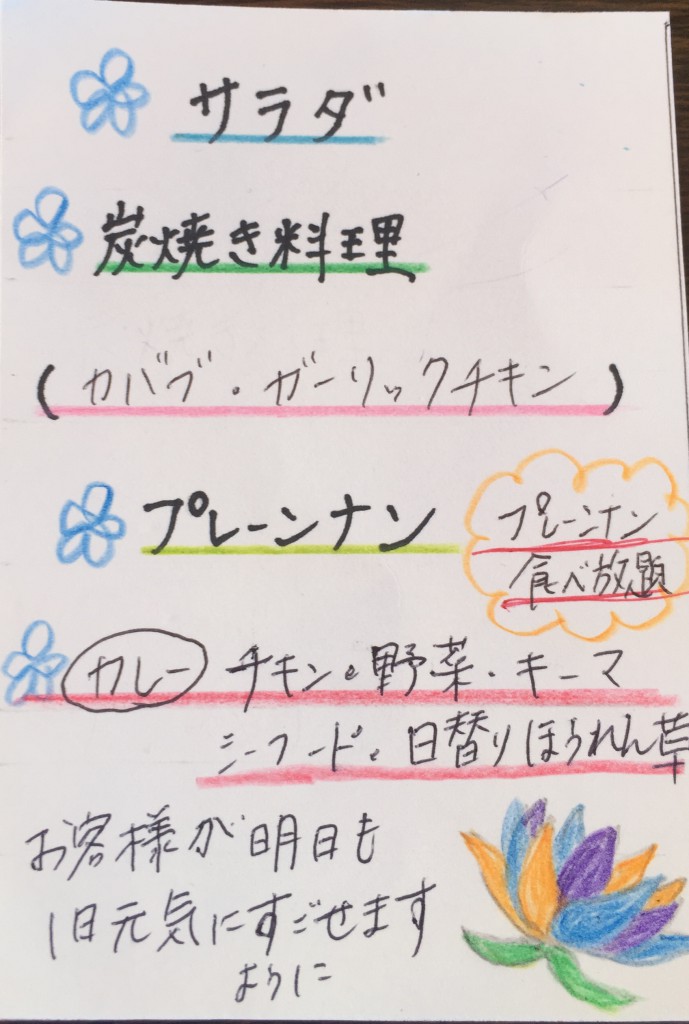 サラダ
炭焼き料理
(カバブ・ガーリックチキン)
プレーンナン
プレーンナン
食べ放題
カレー チキン・野菜・キーマ
シーフード・日替りほうれん草
お客様が明日も
1日元気にすごせます
ように